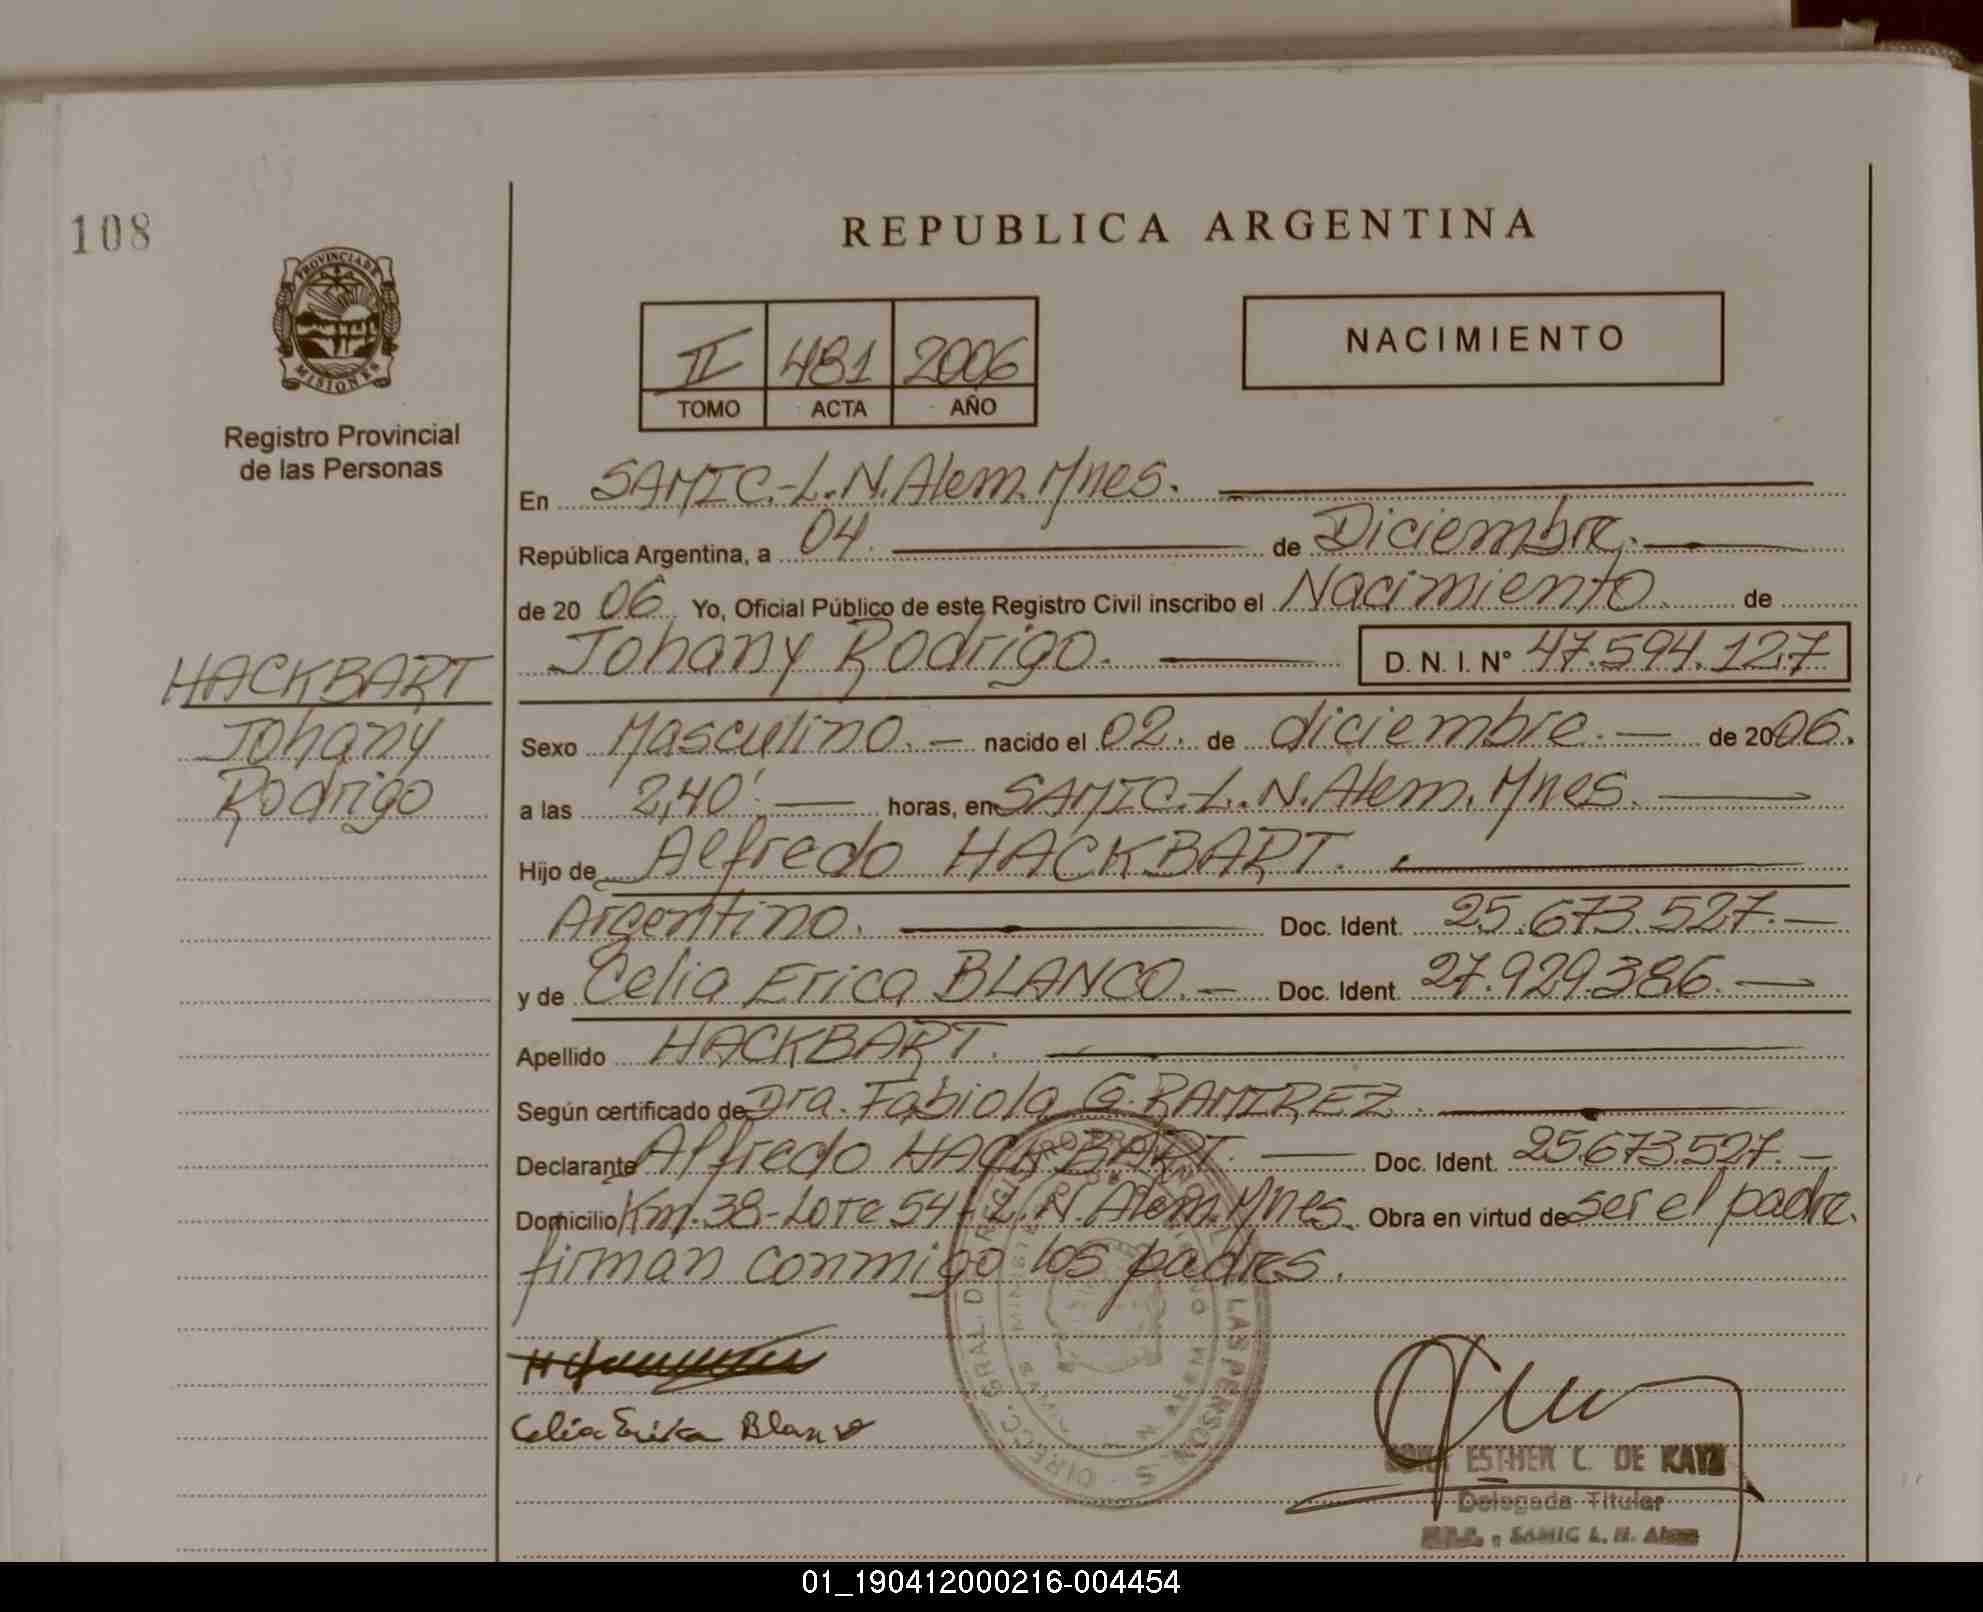 108
REPUBLICA ARGENTINA
PROVINCIA DE
MISIONES
Registro Provincial
de las Personas
II 481 2006
TOMO ACTA AÑO
NACIMIENTO
En SAMIC.-L.N.Alem.Mnes.
República Argentina, a 04. de Diciembre.
de 20 06. Yo, Oficial Público de este Registro Civil inscribo el Nacimiento de
Johany Rodrigo. D. N. I. Nº 47.594.127
HACKBART
Johany
Rodrigo
Sexo Masculino.- nacido el 02. de diciembre.- de 2006.
a las 2,40'. horas, en SAMIC.-L.N.Alem.Mnes.
Hijo de Alfredo HACKBART.
Argentino. Doc. Ident. 25.673.527.-
y de Celia Erica BLANCO.- Doc. Ident. 27.929.386.-
Apellido HACKBART.
Según certificado de Dra. Fabiola G. RAMIREZ.
Declarante Alfredo HACKBART. Doc. Ident. 25.673.527.-
Domicilio Km.38-Lote 54-L.N.Alem.Mnes. Obra en virtud de ser el padre.
firman conmigo los padres.
Celia Erika Blanco
ESTHER C. DE KATZ
Delegada Titular
SAMIC L. N. Alem
01_190412000216-004454